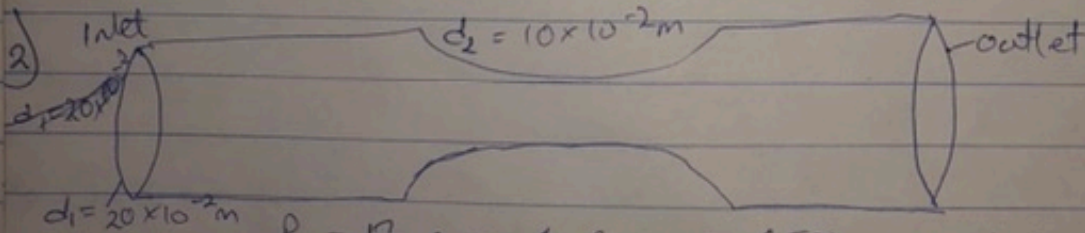 2)
Inlet
d₂ = 10 × 10⁻² m
outlet
d₁ = 20 × 10⁻² m